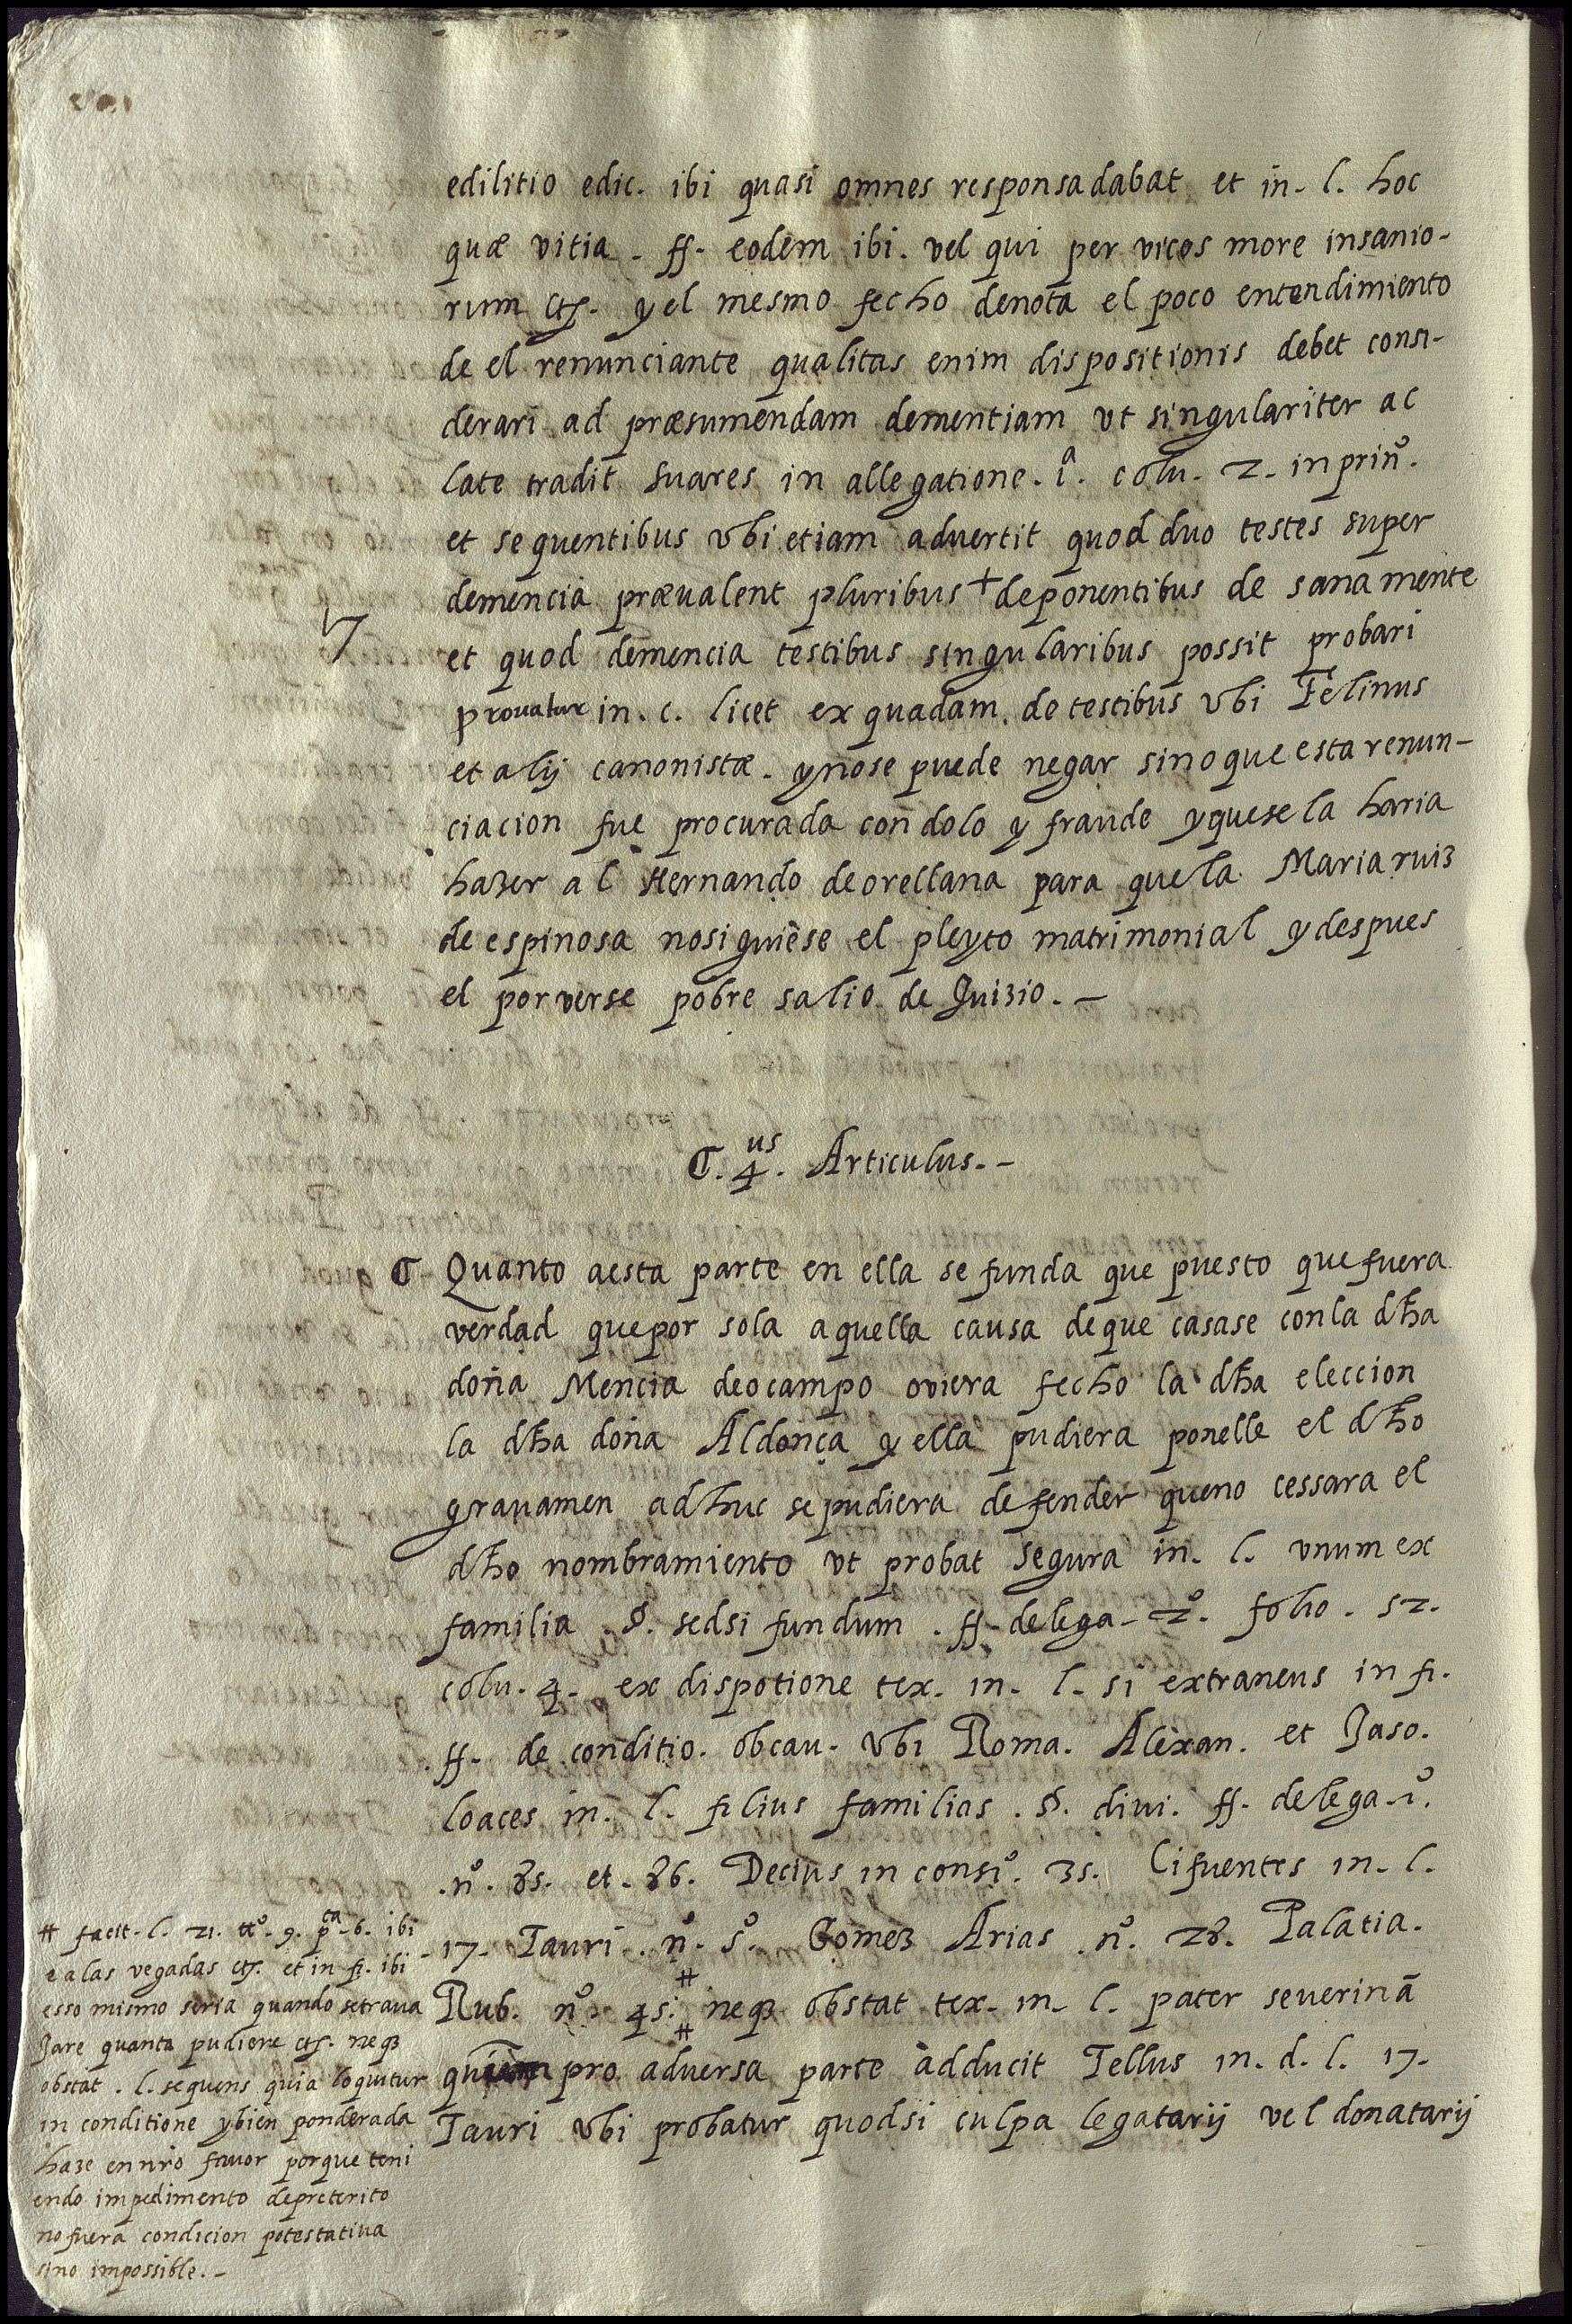 edilitio edic. ibi quasi omnes responsadabat et in. l. hoc
quæ vitia. ff. eodem ibi. vel qui per vices more insanio-
rum etc. y el mesmo fecho denota el poco entendimiento
de el renunciante qualitas enim dispositionis debet consi-
derari ad præsumendam dementiam vt singulariter ac
late tradit suares in allegatione. 1ª. colu. 2. in prinº.
et sequentibus vbi etiam aduertit quod duo testes super
demencia præualent pluribus + deponentibus de sana mente
7
et quod demencia testibus singularibus possit probari
prouatur in. c. licet ex quadam. de testibus vbi Felinus
et alij canonistæ. y nose puede negar sino que esta renun-
ciacion fue procurada con dolo y fraude y quese la haria
hazer al Hernando de orellana para que la Maria ruiz
de espinosa nosiguiese el pleyto matrimonial y despues
el por verse pobre salio de Juizio. -
C. 4.us Articulus. -
C Quanto aesta parte en ella se funda que puesto que fuera
verdad que por sola aquella causa de que casase con la dha
doña Mencia deocampo oviera fecho la dha eleccion
la dha doña Aldonça y ella pudiera ponelle el dho
grauamen adhuc se pudiera defender que no cessara el
dho nombramiento vt probat segura in. l. vnum ex
familia. §. sedsi fundum. ff. delega. 2º. folio. 52.
colu. 4. ex dispotione tex. in. l. si extraneus in fi.
ff. de conditio. obcau. vbi Roma. Alexan. et Jaso.
loaces in. l. filius familias. §. diui. ff. delega. 1º.
.nº. 85. et. 86. Decius in consiº. 35. Cifuentes in. l.
17. Tauri. nº. 5º. Gomez Arias. nº. 28. Palatia.
Rub. nº. 45. # neq3 obstat tex. in. l. pater seuerinā
# pro aduersa parte adducit Tellus in. d. l. 17.
Tauri vbi probatur quodsi culpa legatarij vel donatarij
# facit. l. 21. ttº. 9. pca. 6. ibi
e a las vegadas etc. et in fi. ibi
esso mismo seria quando se traua
Jare quanta pudiere etc. neq3
obstat. l. sequens quia loquitur
in conditione y bien ponderada
haze en nrō fauor porque teni
endo impedimento depreterito
no fuera condicion potestatiua
sino impossible. -